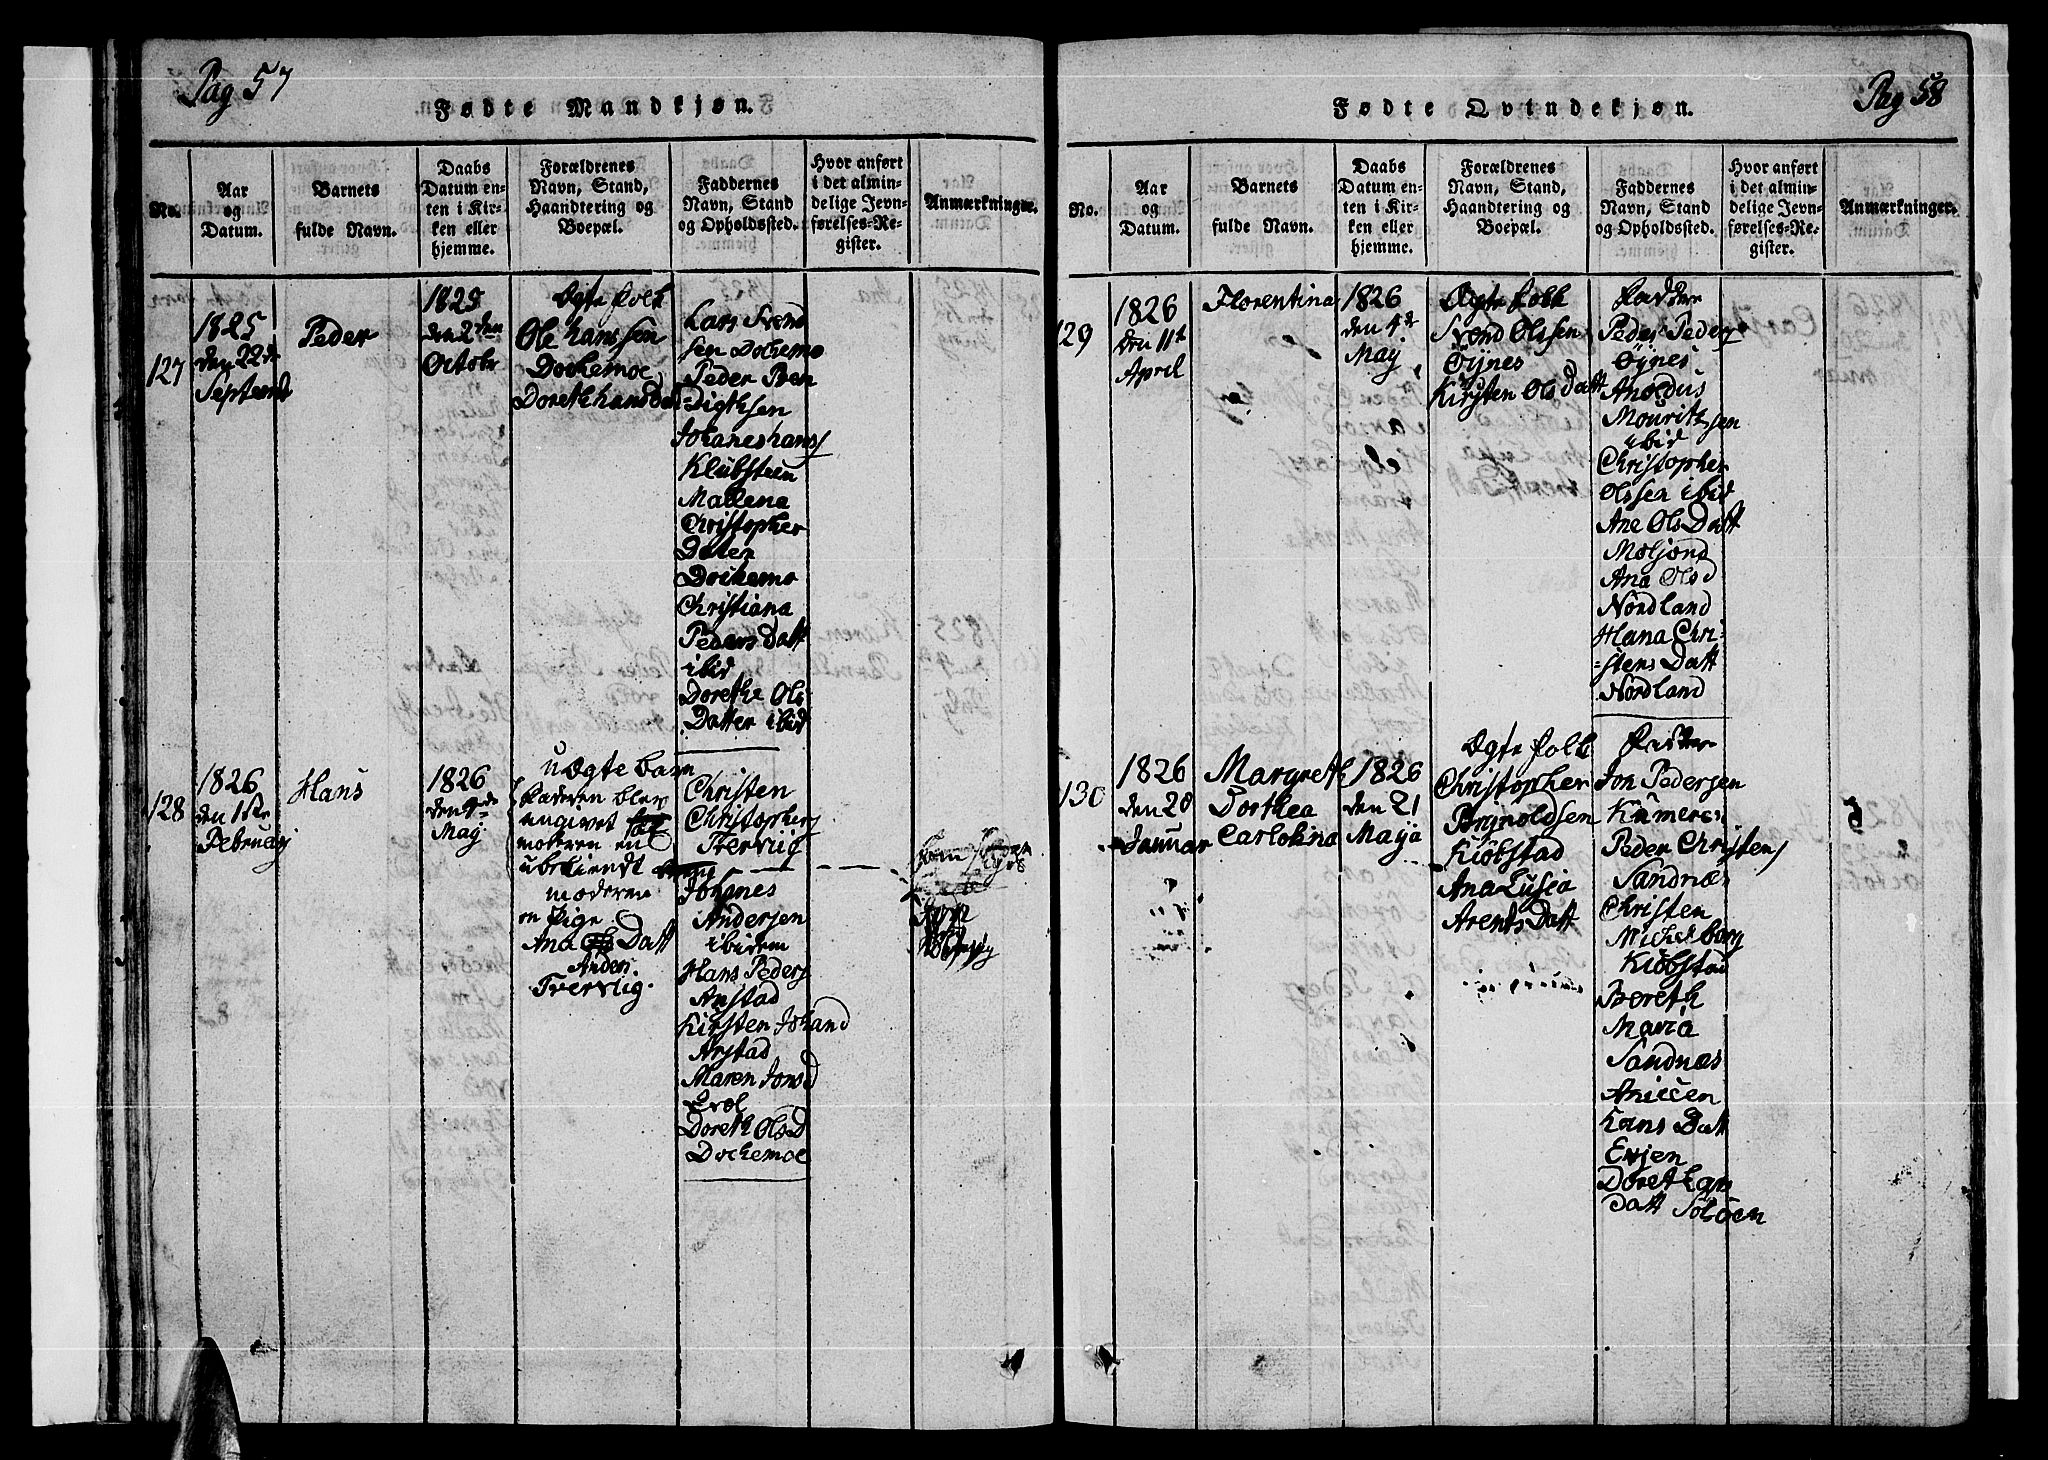 Pag 57
Fødte Mandkjøn.
No.
Aar
og
Datum.
Barnets
fulde Navn.
Daabs
Datum en-
ten i Kir-
ken eller
hjemme.
Forældrenes
Navn, Stand,
Haandtering og
Boepæl.
Faddernes
Navn, Stand
og Opholdssted.
Hvor anført
i det almin-
delige Jevn-
førelses-Re-
gister.
Anmærkninger.
127
1825
den 22de
Septemb
Peder
1825
den 2den
Octobr
Ægte folk
Ole hanssen
Dochemoe
Doreth hansdat
Lars Svend
sen Dochemo
Peder Ben
-digtsen
Johanes hans
Klubsteen
Mallena
Christopher
Dater
Dochemo
Christiana
Peders Datt
ibid
Dorethe Ols
Datter ibid
128
1826
den 1ste
Februarj
Hans
1826
den 4de
Maj
uÆgte barn
Faderen blev
angivet
moderen en
ubekiendt
moderen
en Pige
Ana Datt
Anders
Tverviig.
Christen
Christophers
Tverviig
Johanes
Andersen
ibidem
Hans Peders
Arstad
Kirsten Johand
Arstad
Maren Jonsd
Evol
Doreth Ols D
Dochemoe
Pag 58
Fødte Qvindekjøn.
No.
Aar
og
Datum.
Barnets
fulde Navn.
Daabs
Datum en-
ten i Kir-
ken eller
hjemme.
Forældrenes
Navn, Stand,
Haandtering og
Boepæl.
Faddernes
Navn, Stand
og Opholdssted.
Hvor anført
i det almin-
delige Jevn-
førelses-Re-
gister.
Anmærkninger.
129
1826
den 11te
April
Florentina
1826
den 4de
Maj
Ægte folk
Svend Olssen
Øynes
Kirsten Ols Datt
Faddere
Peder Peders
Øynes
Anoldus
Mouritzsen
ibid
Christopher
Olssen ibid
Ane Ols Datt
Moljord
Ana Olsd
Nordland
Hana Chri-
-stens Datt
Nordland
130
1826
den 28
Januar
Margreth
Dorthea
Carlolina
1826
den 21
Maja
Ægte folk
Christopher
Brynoldsen
Kiöbstad
Ana Lusia
Arents Datt
Fadder
Jon Pedersen
Kümeren
Peder Christens
Sandnæs
Christen
Michelborg
Kiöbstad
Bereth
Maria
Sandnæs
Anicen
Hans Datt
Evjen
Doreth
Datt Solöen